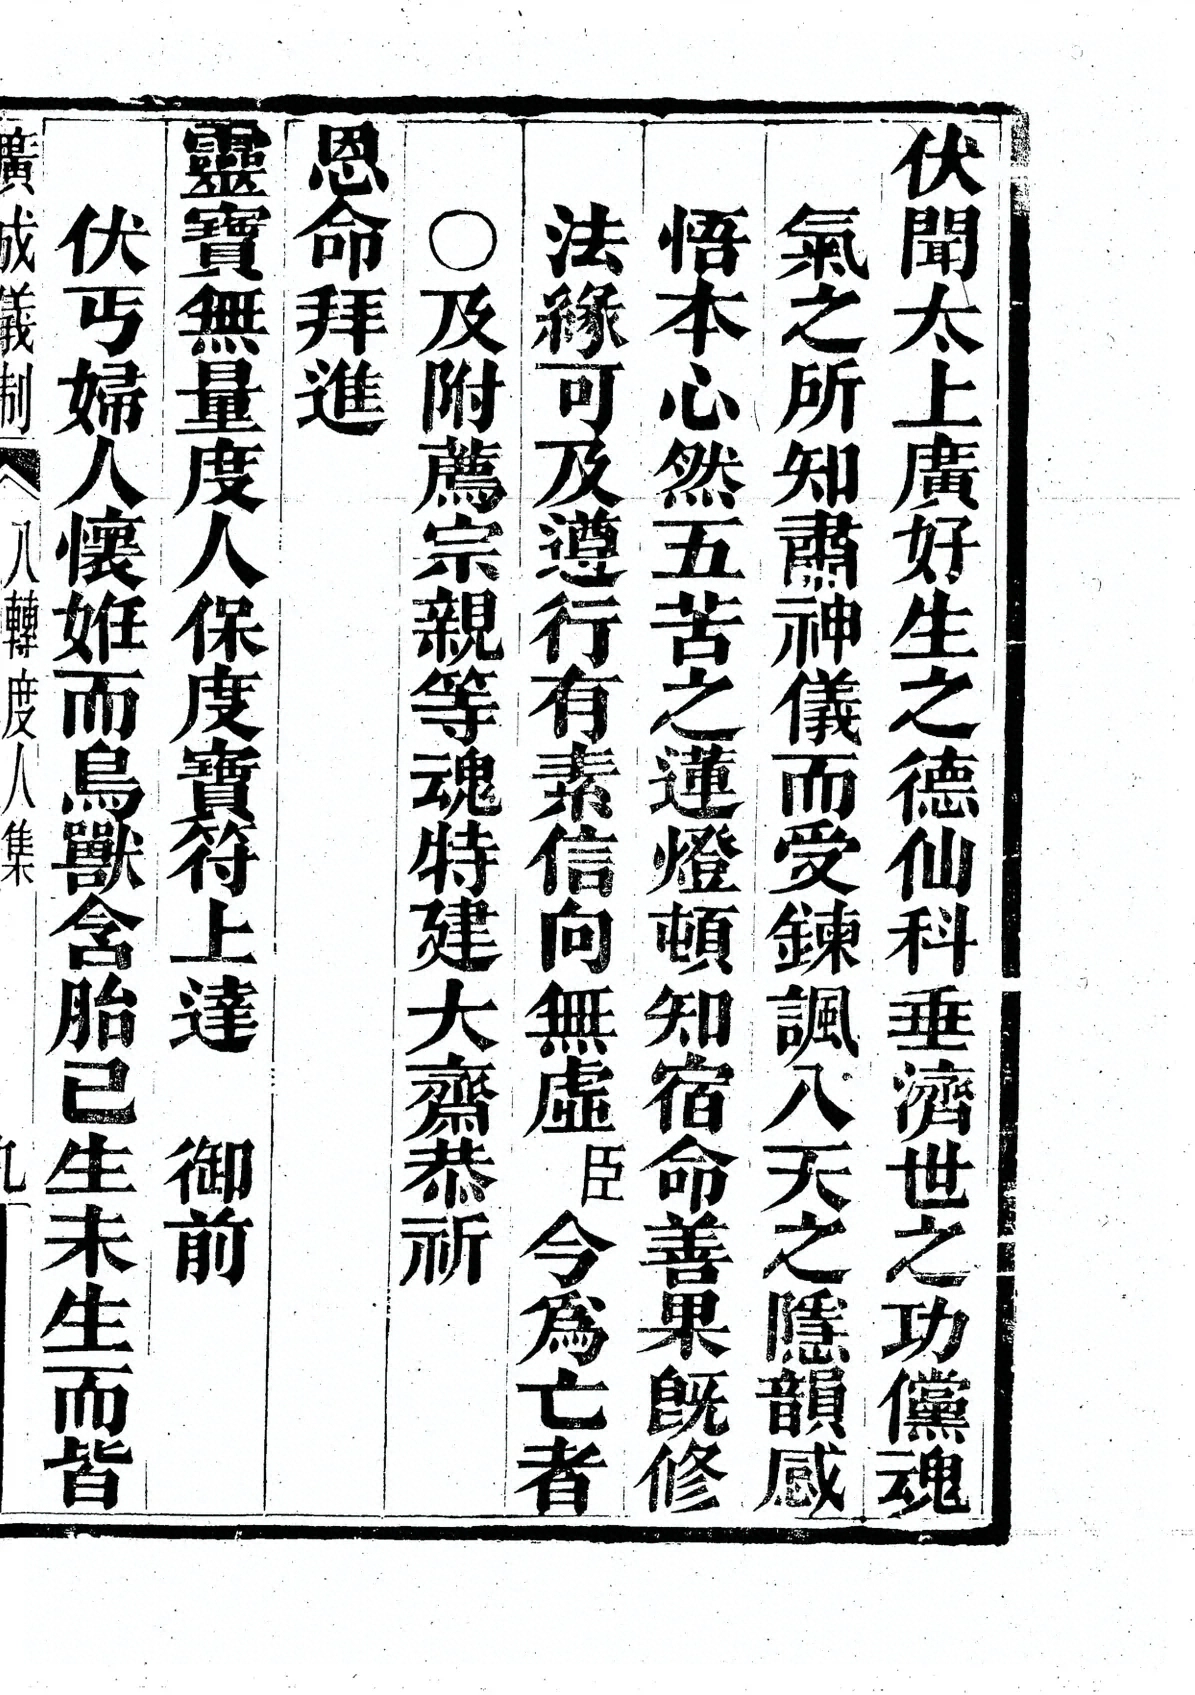 伏聞太上廣好生之德仙科垂濟世之功儻魂
氣之所知肅神儀而受鍊諷八天之隱韻感
悟本心然五苦之蓮燈頓知宿命善果既修
法緣可及遵行有素信向無虛臣今為亡者
○及附薦宗親等魂特建大齋恭祈
恩命拜進
靈寶無量度人保度寶符上達　御前
伏丐婦人懷妊而鳥獸含胎已生未生而皆
廣成儀制　八轉度人集　九